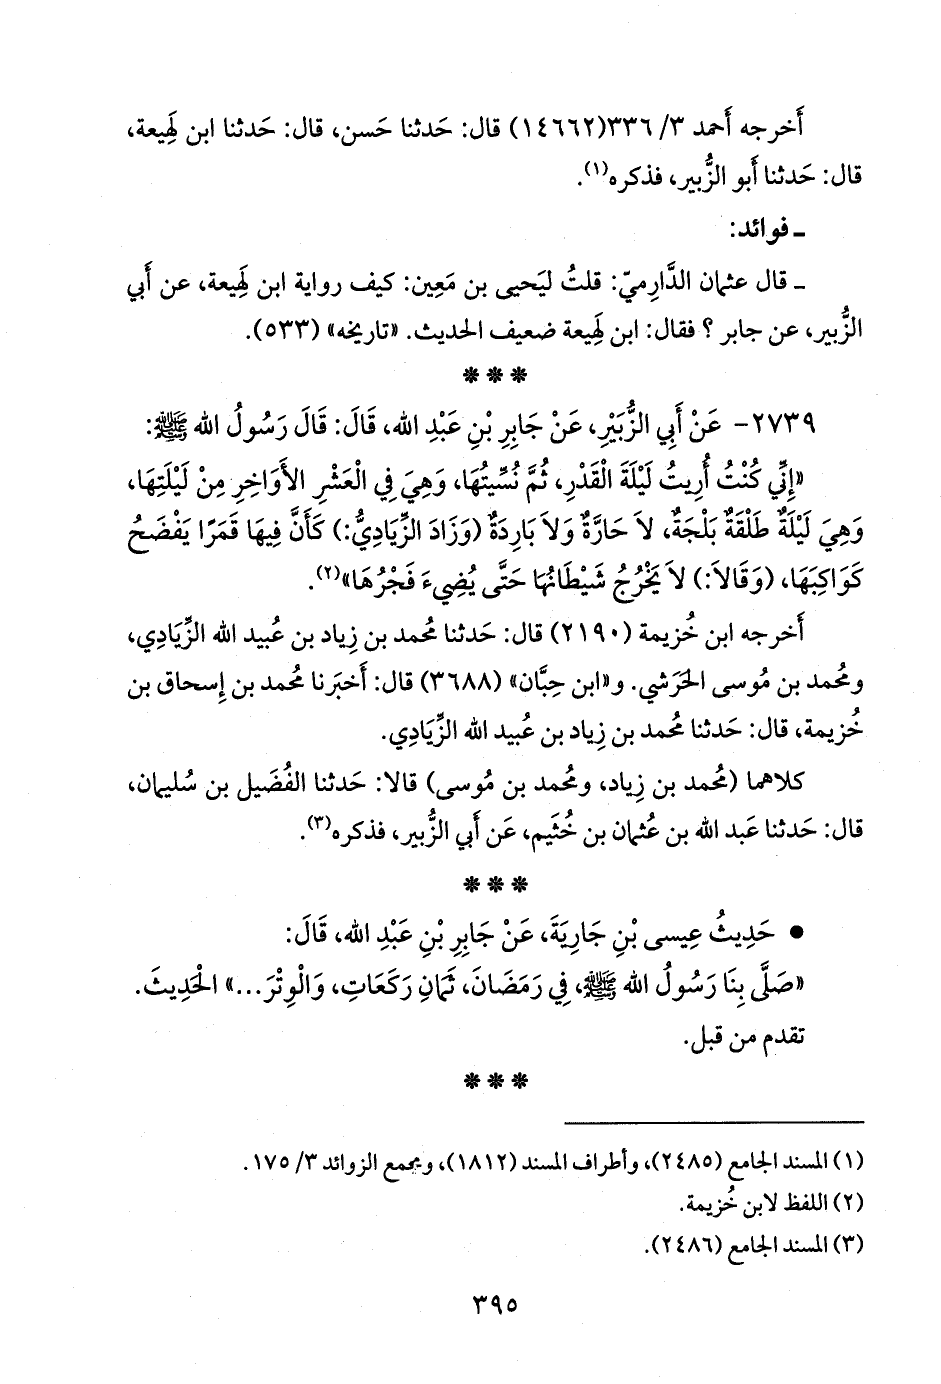 أَخرجه أَحمد ٣/ ٣٣٦(١٤٦٦٢) قال: حَدثنا حَسن، قال: حَدثنا ابن لَهِيعة،
قال: حَدثنا أَبو الزُّبير، فذكره(١).
ـ فوائد:
ـ قال عثمان الدَّارِميّ: قلتُ ليَحيى بن مَعِين: كيف رواية ابن لَهِيعة، عن أَبي
الزُّبير، عن جابر ؟ فقال: ابن لَهِيعة ضعيف الحديث. «تاريخه» (٥٣٣).
* * *
٢٧٣٩- عَنْ أَبِي الزُّبَيْرِ، عَنْ جَابِرِ بْنِ عَبْدِ الله، قَالَ: قَالَ رَسُولُ الله ﷺ:
«إِنِّي كُنْتُ أُرِيتُ لَيْلَةَ الْقَدْرِ، ثُمَّ نُسِّيتُهَا، وَهِيَ فِي الْعَشْرِ الأَوَاخِرِ مِنْ لَيْلَتِهَا،
وَهِيَ لَيْلَةٌ طَلْقَةٌ بَلْجَةٌ، لاَ حَارَّةٌ وَلاَ بَارِدَةٌ (وَزَادَ الزِّيَادِيُّ:) كَأَنَّ فِيهَا قَمَرًا يَفْضَحُ
كَوَاكِبَهَا، (وَقَالاَ:) لاَ يَخْرُجُ شَيْطَانُهَا حَتَّى يُضِيءَ فَجْرُهَا»(٢).
أَخرجه ابن خُزيمة (٢١٩٠) قال: حَدثنا مُحمد بن زِياد بن عُبيد الله الزِّيَادِي،
ومُحمد بن مُوسى الحَرَشي. و«ابن حِبَّان» (٣٦٨٨) قال: أَخبَرنا مُحمد بن إِسحاق بن
خُزيمة، قال: حَدثنا مُحمد بن زِياد بن عُبيد الله الزِّيَادِي.
كلاهما (مُحمد بن زِياد، ومُحمد بن مُوسى) قالا: حَدثنا الفُضَيل بن سُليمان،
قال: حَدثنا عَبد الله بن عُثمان بن خُثَيم، عَن أَبي الزُّبير، فذكره(٣).
* * *
● حَدِيثُ عِيسى بْنِ جَارِيَةَ، عَنْ جَابِرِ بْنِ عَبْدِ الله، قَالَ:
«صَلَّى بِنَا رَسُولُ الله ﷺ، فِي رَمَضَانَ، ثَمَانِ رَكَعَاتٍ، وَالْوِتْرَ...» الْحَدِيثَ.
تقدم من قبل.
* * *
(١) المسند الجامع (٢٤٨٥)، وأطراف المسند (١٨١٢)، ومجمع الزوائد ٣/ ١٧٥.
(٢) اللفظ لابن خُزيمة.
(٣) المسند الجامع (٢٤٨٦).
٣٩٥